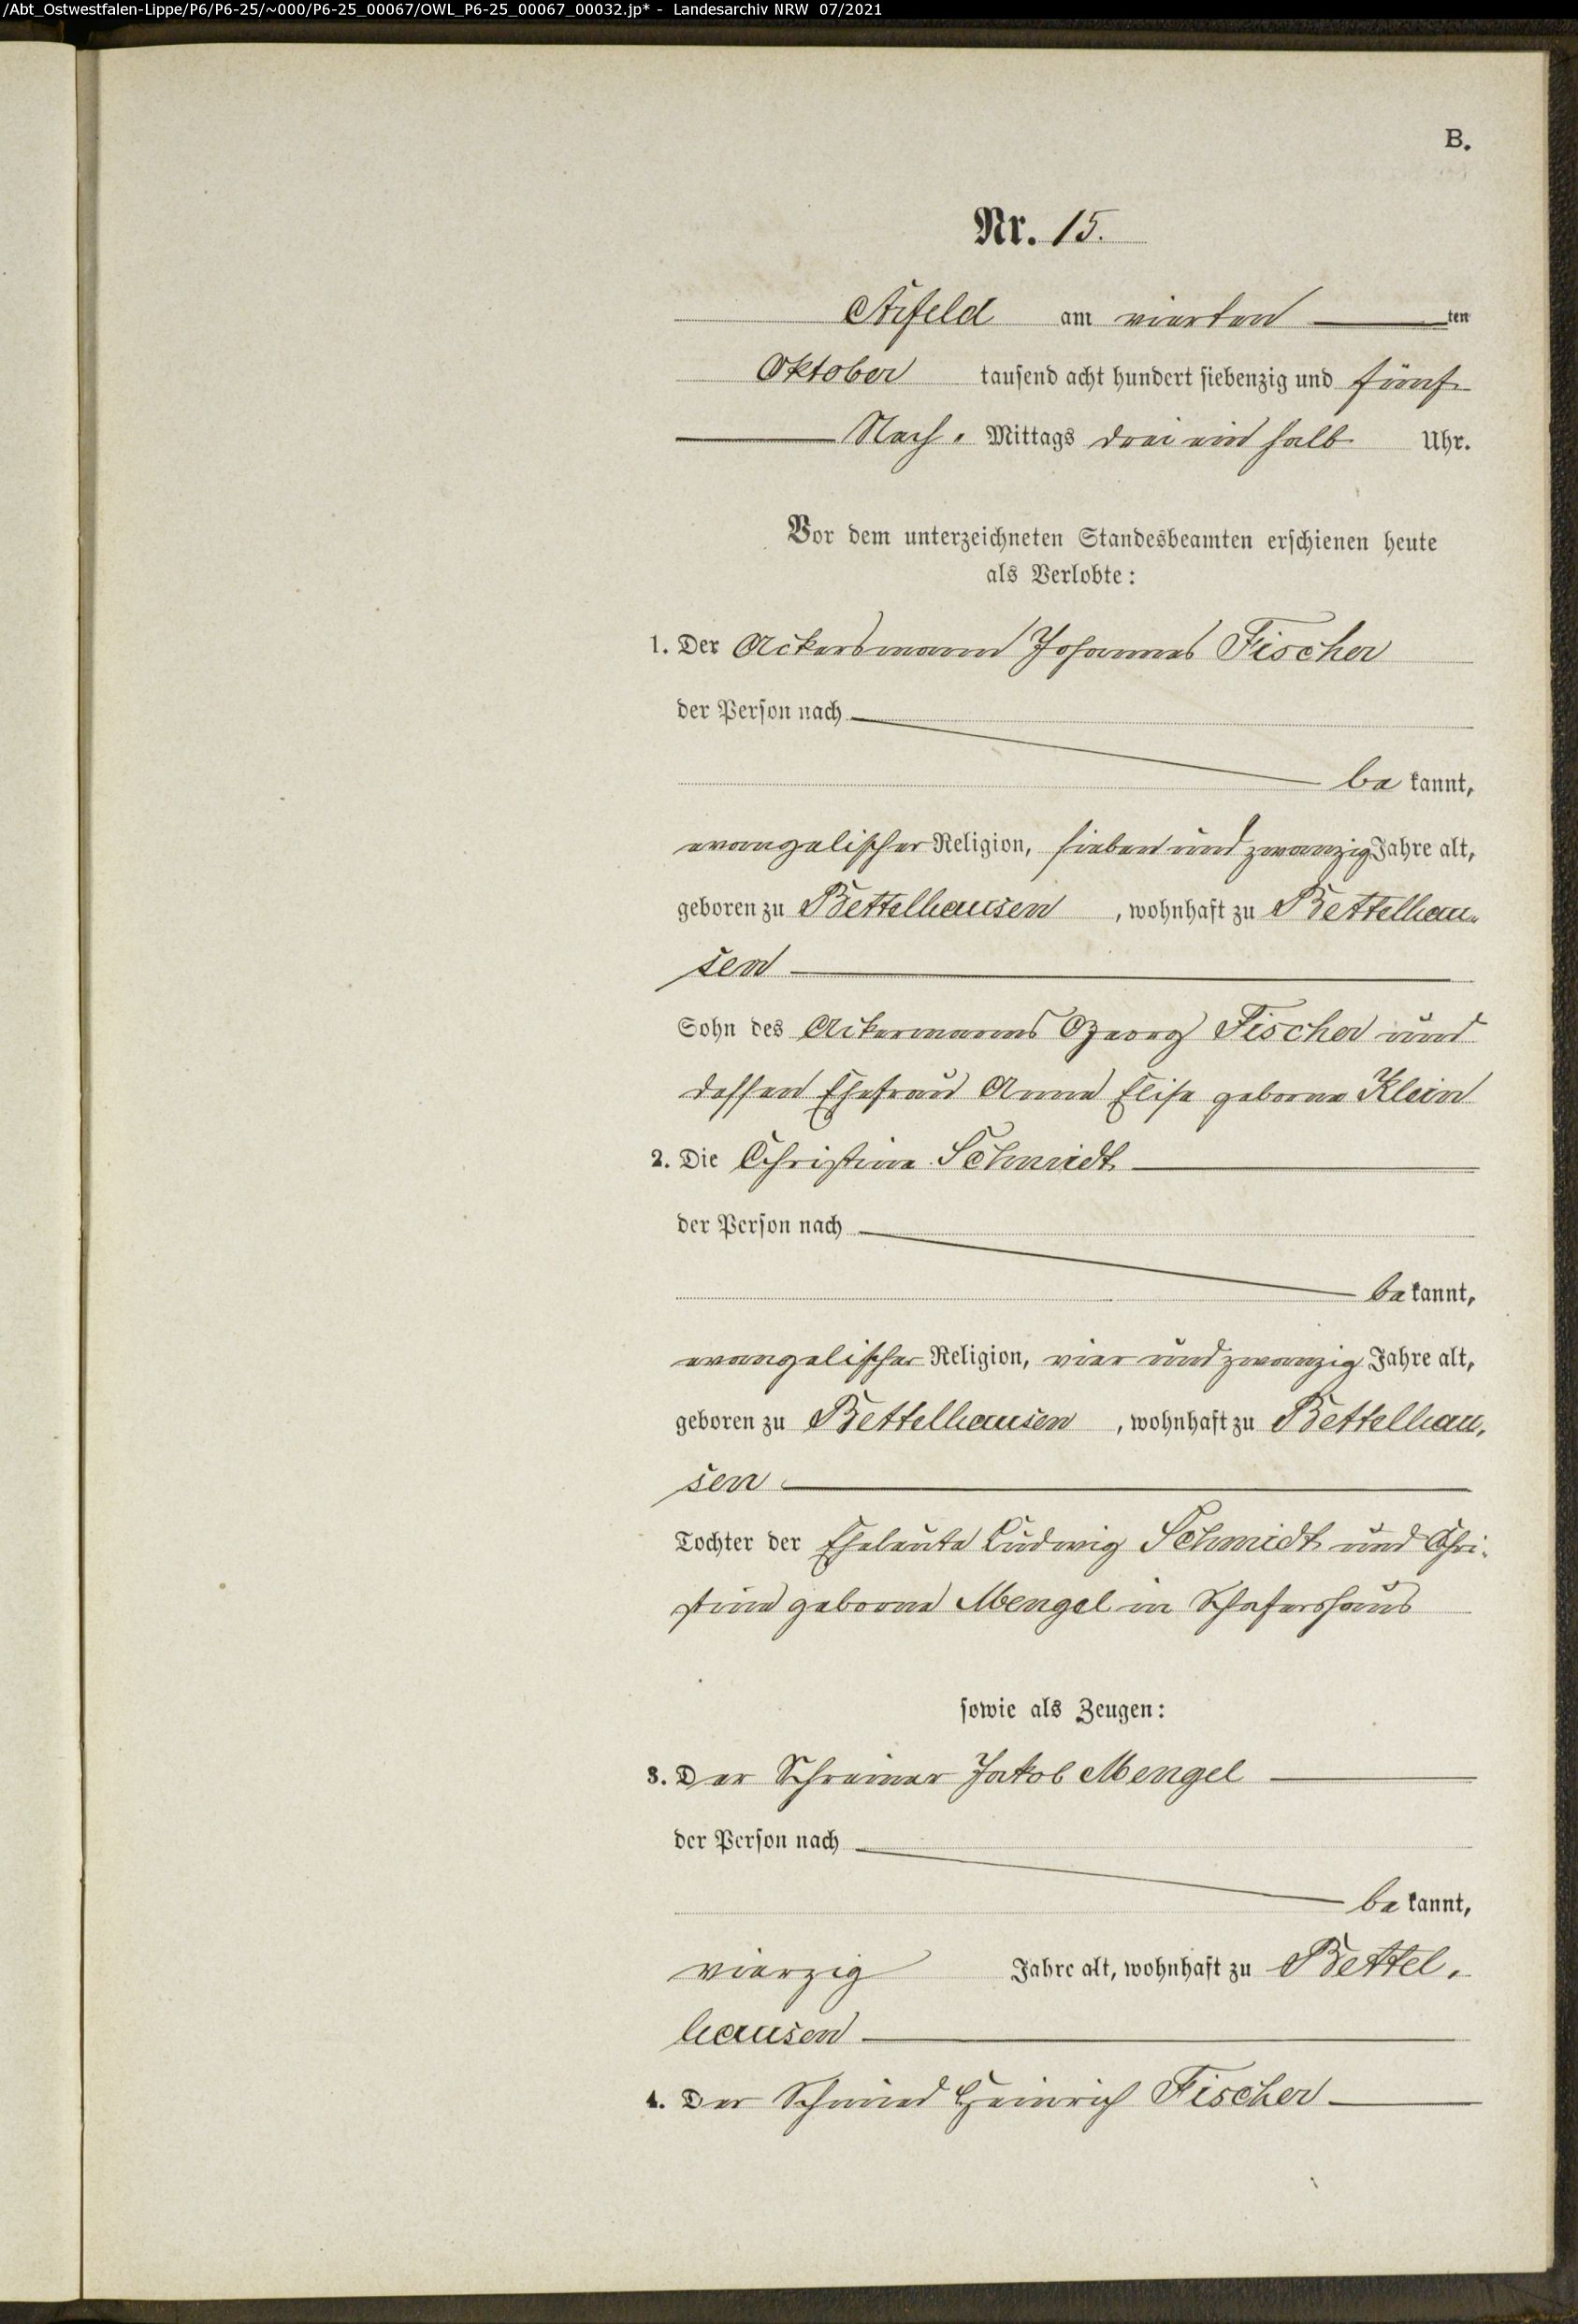 /Abt_Ostwestfalen-Lippe/P6/P6-25/~000/P6-25_00067/OWL_P6-25_00067_00032.jp* - Landesarchiv NRW 07/2021
B.
Nr. 15.
Arfeld am vierten ten
Oktober tausend acht hundert siebenzig und fünf
Nach. Mittags drei ein halb Uhr.
Vor dem unterzeichneten Standesbeamten erschienen heute
als Verlobte:
1. Der Ackersmann Johannes Fischer
der Person nach
be kannt,
evangelischer Religion, sieben und zwanzig Jahre alt,
geboren zu Bettelhausen, wohnhaft zu Bettelhau-
sen
Sohn des Ackermanns Georg Fischer und
dessen Ehefrau Anna Elise geborne Klein
2. Die Christine Schmidt
der Person nach
be kannt,
evangelischer Religion, vier und zwanzig Jahre alt,
geboren zu Bettelhausen, wohnhaft zu Bettelhau-
sen
Tochter der Eheleute Ludwig Schmidt und Chri-
stine geborne Mengel in Schafershaus
sowie als Zeugen:
3. Der Schreiner Jakob Mengel
der Person nach
be kannt,
vierzig Jahre alt, wohnhaft zu Bettel-
hausen
4. Der Schmied Heinrich Fischer